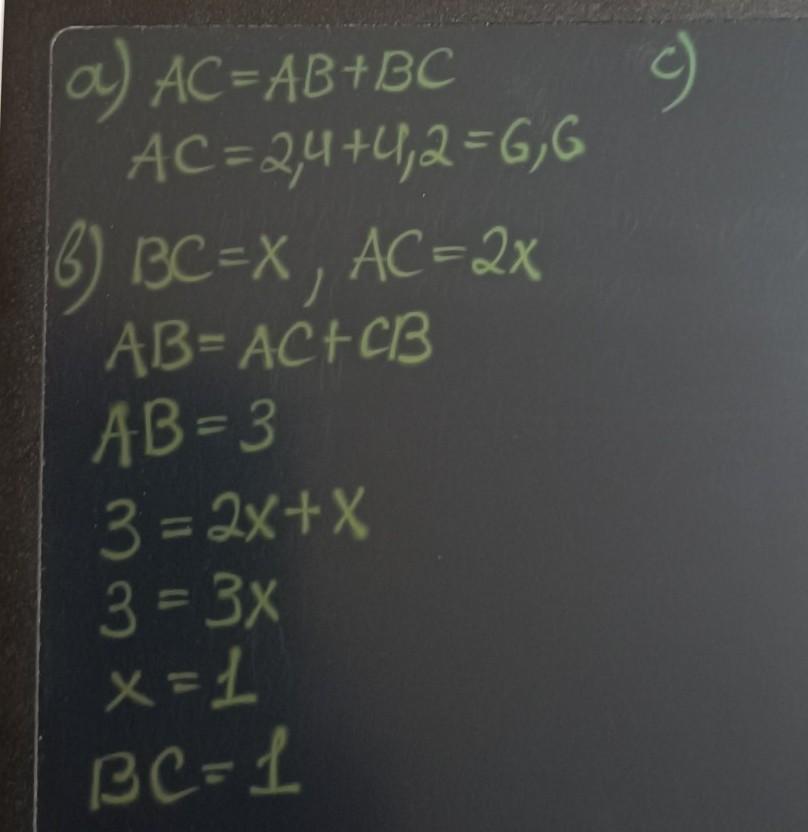 a) AC=AB+BC
AC=2,4+4,2=6,6
b) BC=x, AC=2x
AB=AC+CB
AB=3
3=2x+x
3=3x
x=1
BC=1
c)